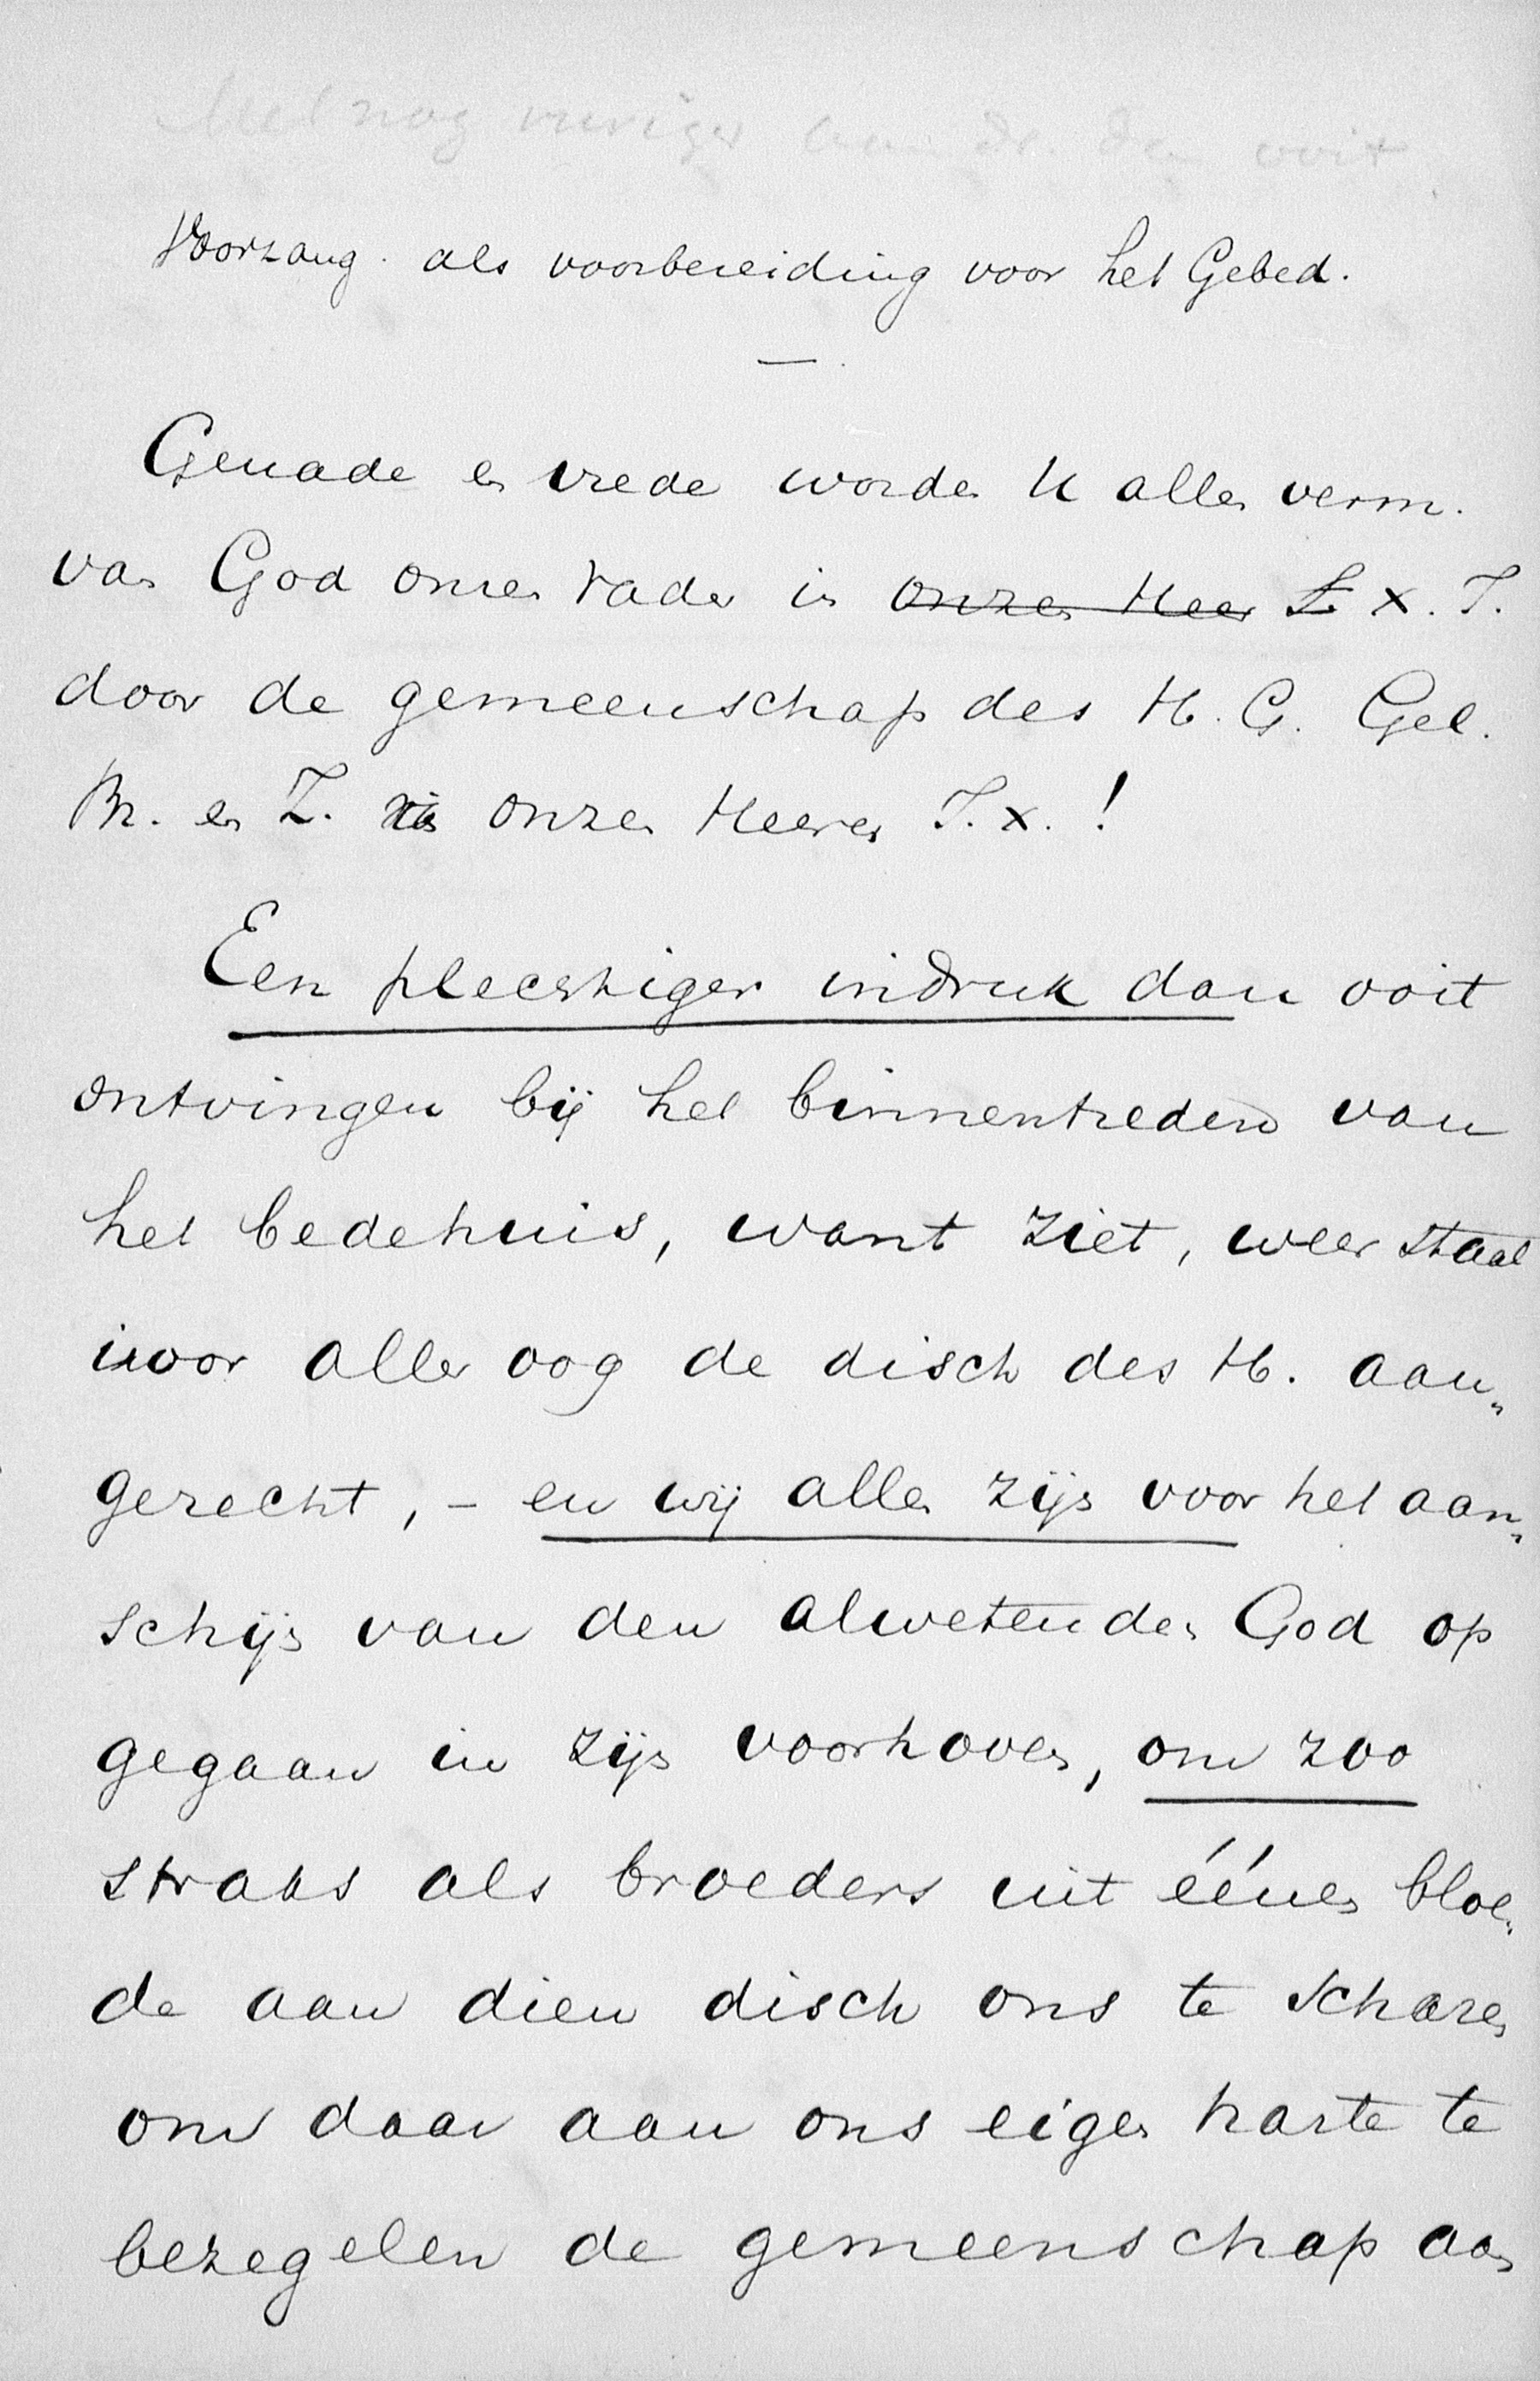 nog vuriger dan ooit
Voorzang als voorbereiding voor het Gebed.
Genade en vrede worde U allen verm.
van God onzen Vader in onzen Heer X. J.
door de gemeenschap des H. G. Gel.
Br. en Z. in onzen Heere J. X. !
Een plechtiger indruk dan ooit
ontvingen bij het binnentreden van
het bedehuis, want ziet, weer staat
voor aller oog de disch des H. aan„
gerecht, – en wij allen zijn voor het aan„
schijn van den alwetenden God op
gegaan in zijn voorhoven, om zoo
straks als broeders uit éénen bloe„
de aan dien disch ons te scharen
om daar aan ons eigen harte te
bezegelen de gemeenschap aan